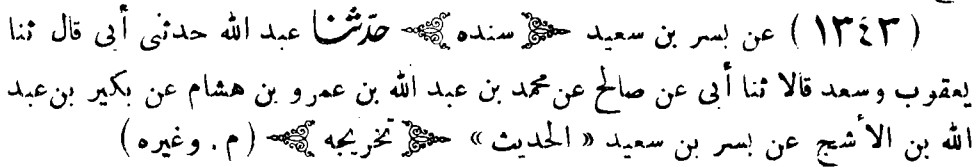 ( ١٣٤٣ ) عن بسر بن سعيد سنده حدّثنا عبد الله حدثنى أبى قال ثنا
يعقوب وسعد قالا ثنا أبى عن صالح عن محمد بن عبد الله بن عمرو بن هشام عن بكير بن عبد
الله بن الأشج عن بسر بن سعيد « الحديث » تخريجه ( م . وغيره )